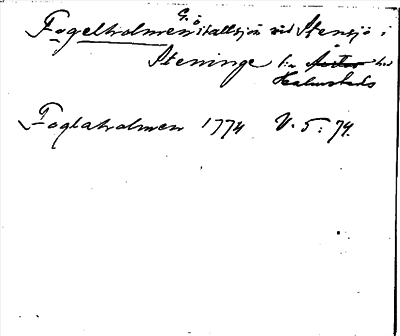 Fogelholmen G. ö i saltsjön vid Stensjö i
Steninge s:n Årstad hd
Halmstads
Foglaholmen 1774 V. 5: 74.